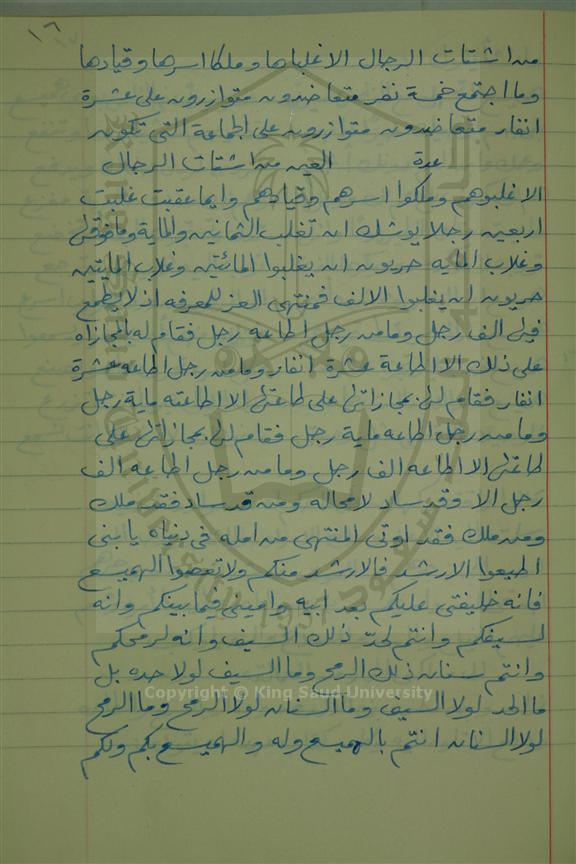 ١٦
من اشتات الرجال الا غلباها وملكا اسرها وقيادها
وما اجتمع خمسة نفر متعاضدون متوازرون على عشرة
انفار متعاضدون متوازرون على الجماعة التي تكون
عدة العين من اشتات الرجال
الا غلبوهم وملكوا اسرهم وقيادهم وايما عقبت غلبت
اربعين رجلا يوشك ان تغلب الثمانين والماية وما فوق
وغلاب المايه حريون ان يغلبوا المائتين وغلاب المايتين
حريون ان يغلبوا الالف فمنتهى العز المعرفه اذ لا يطمع
في الف رجل وما من رجل اطاعه رجل فقام له بالمجازاه
على ذلك الا اطاعة عشرة انفار وما من رجل اطاعه عشرة
انفار فقام لهم بمجازاتهم على طاعتهم الا اطاعته ماية رجل
وما من رجل اطاعه ماية رجل فقام لهم بمجازاتهم على
طاعتهم الا اطاعه الف رجل وما من رجل اطاعه الف
رجل الا وقد ساد لا محاله ومن قد ساد فقد ملك
ومن ملك فقد اوتى المنتهى من امله في دنياه يا بني
اطيعوا الارشد فالارشد منكم ولا تعصوا الهميسع
فانه خليفتي عليكم بعد ابيه واميني فيما بينكم وانه
لسيفكم وانتم لحد ذلك السيف وانه لرمحكم
وانتم سنان ذلك الرمح وما السيف لولا حده بل
ما الحد لولا السيف وما السنان لولا الرمح وما الرمح
لولا السنان انتم بالهميسع وله والهميسع بكم ولكم
Copyright © King Saud University